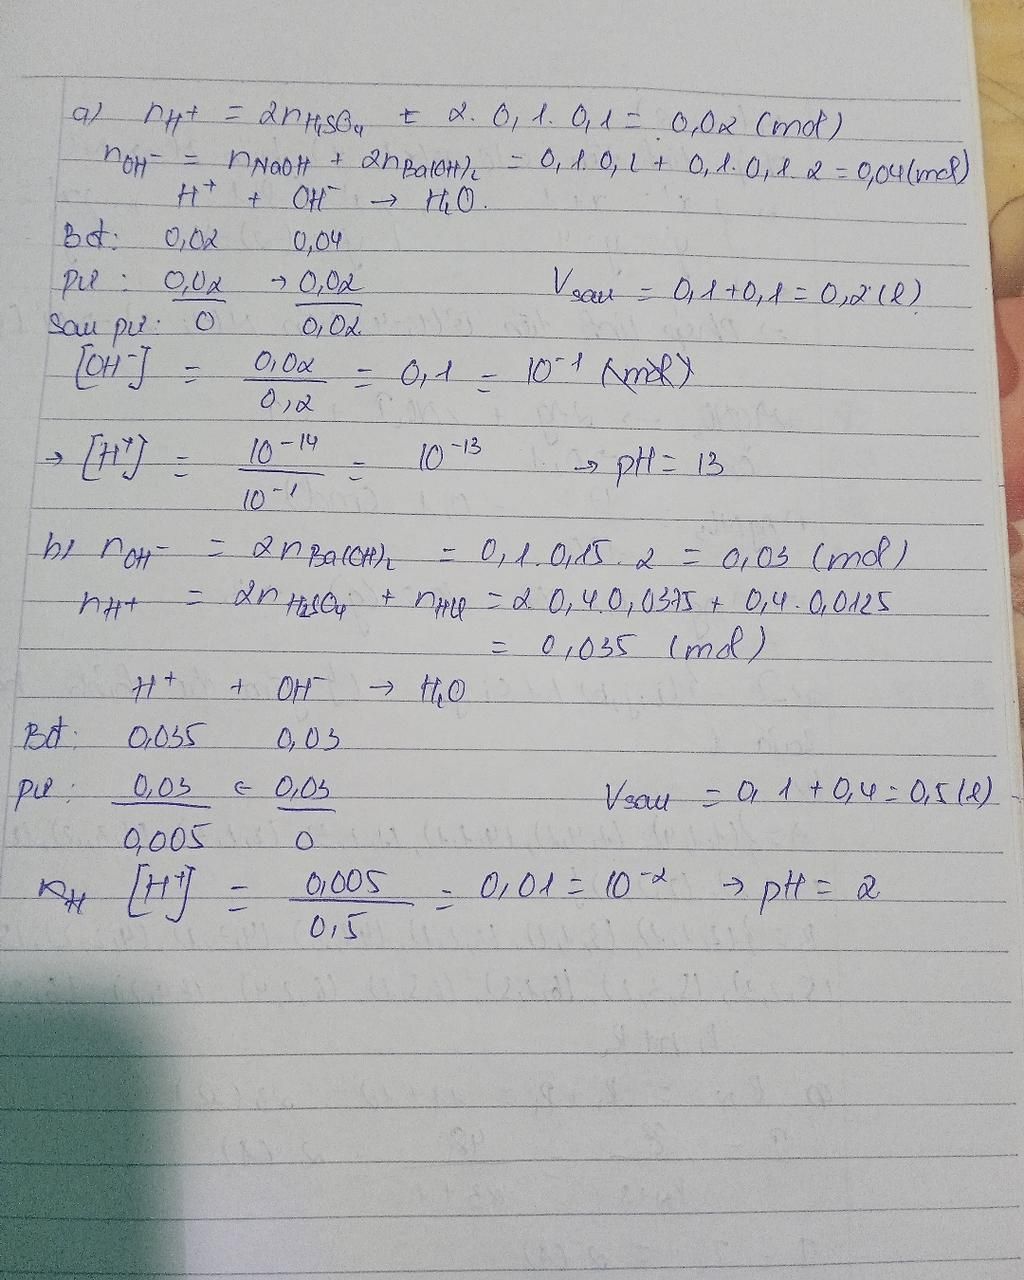 a) nH+ = 2nH2SO4 = 2. 0,1. 0,1 = 0,02 (mol)
nOH- = nNaOH + 2nBa(OH)2 = 0,1. 0,2 + 0,1. 0,1. 2 = 0,04 (mol)
H+ + OH- → H2O.
Bđ: 0,02 0,04
pư: 0,02 → 0,02 Vsau = 0,1 + 0,1 = 0,2 (l)
Sau pư: 0 0,02
[OH-] = 0,02/0,2 = 0,1 = 10^-1
→ [H+] = 10^-14/10^-1 = 10^-13 → pH = 13
b) nOH- = 2nBa(OH)2 = 0,1. 0,15. 2 = 0,03 (mol)
nH+ = 2nH2SO4 + nHCl = 2. 0,4. 0,0375 + 0,4. 0,0125
= 0,035 (mol)
H+ + OH- → H2O
Bđ: 0,035 0,03
pư: 0,03 ← 0,03 Vsau = 0,1 + 0,4 = 0,5 (l)
0,005 0
[H+] = 0,005/0,5 = 0,01 = 10^-2 → pH = 2